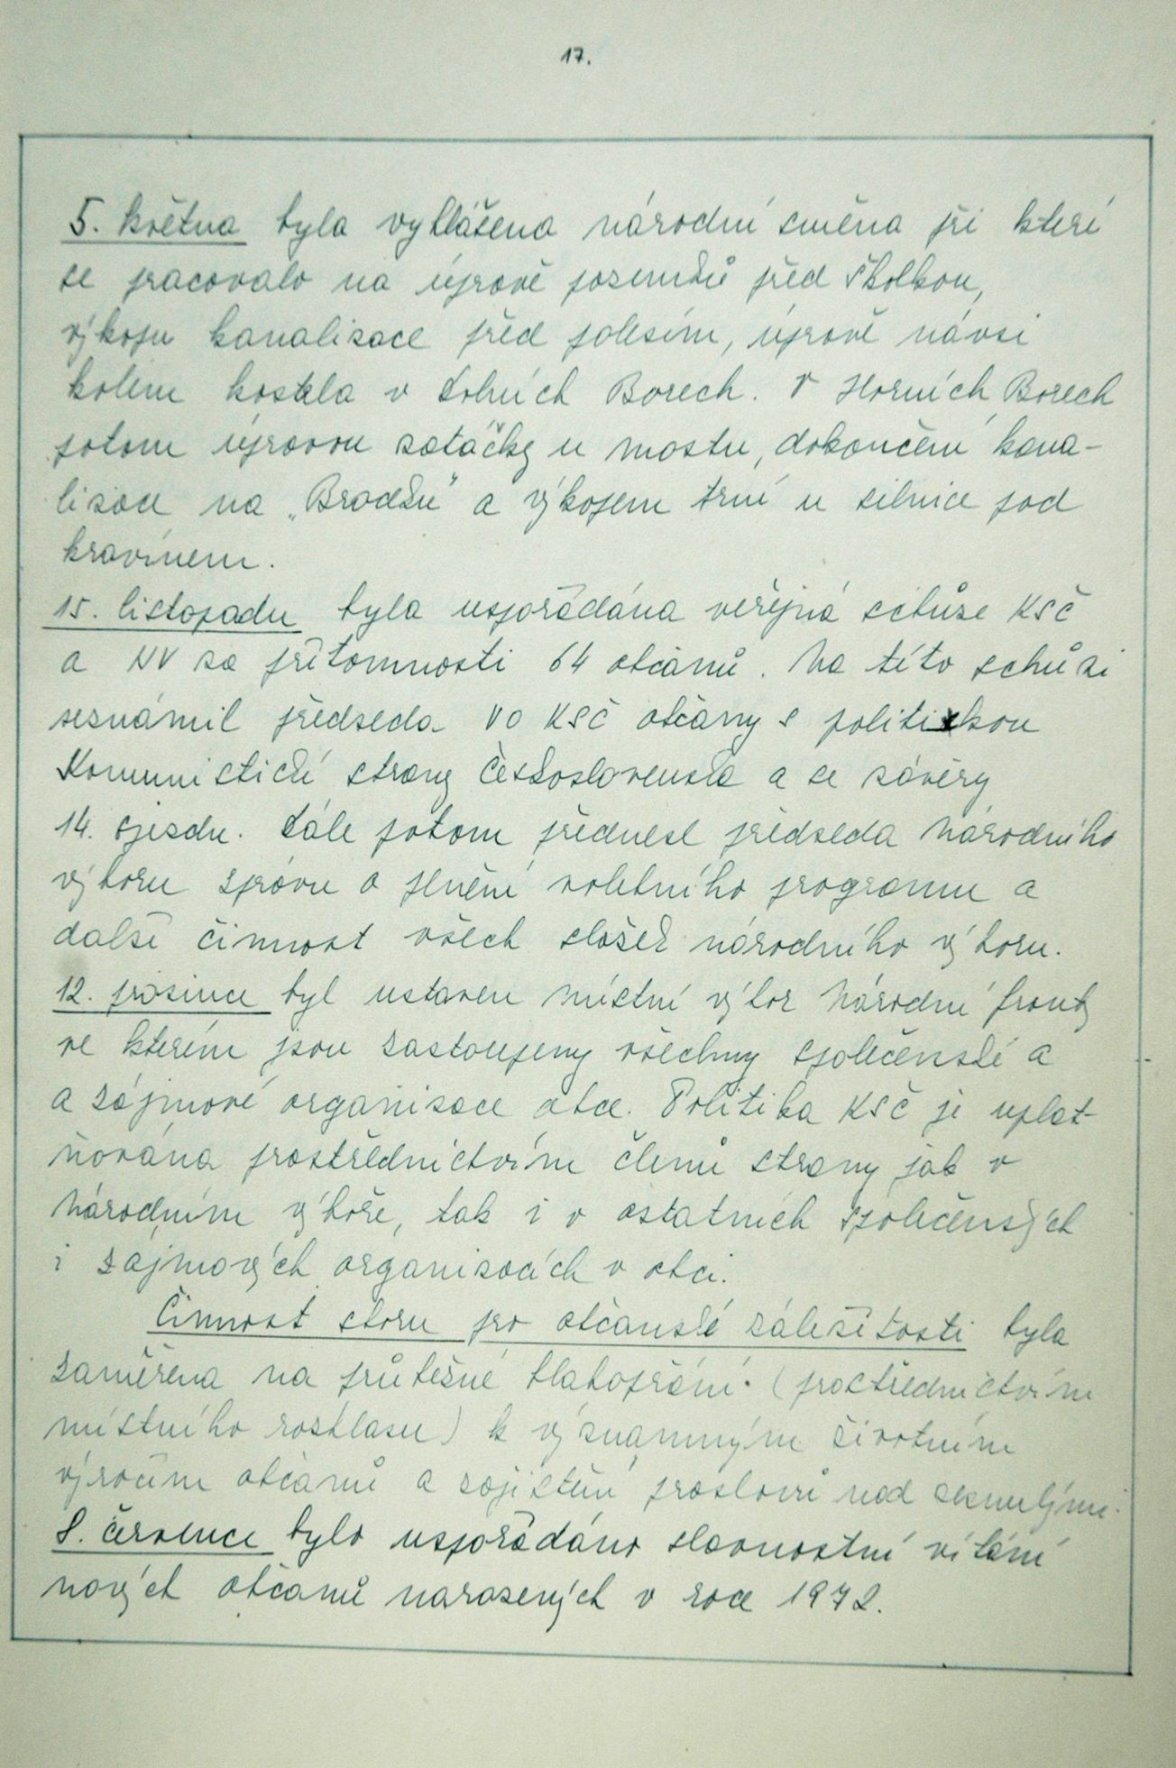 17.
5. května byla vyhlášena národní směna při které
se pracovalo na úpravě pozemků před školkou,
výkopu kanalisace před polesím, úpravě návsi
kolem kostela v Dolních Borech. V Horních Borech
potom úpravou zatáčky u mostu, dokončení kana-
lisace na „Brodku" a výkopem trní u silnice pod
kravínem.
15. listopadu byla uspořádána veřejná schůze KSČ
a NV za přítomnosti 64 občanů. Na této schůzi
seznámil předseda VO KSČ občany s politikou
Komunistické strany Československa a se závěry
14. sjezdu. Dále potom přednesl předseda Národního
výboru zprávu o plnění volebního programu a
další činnost všech složek národního výboru.
12. prosince byl ustaven místní výbor Národní fronty
ve kterém jsou zastoupeny všechny společenské a
a zájmové organisace obce. Politika KSČ je uplat-
ňována prostřednictvím členů strany jak v
Národním výboře, tak i v ostatních společenských
i zájmových organisacích v obci.
Činnost sboru pro občanské záležitosti byla
zaměřena na průběžné blahopřání (prostřednictvím
místního rozhlasu) k významným životním
výročím občanů a zajištění proslovů nad zesnulými.
8. července bylo uspořádáno slavnostní vítání
nových občanů narozených v roce 1972.